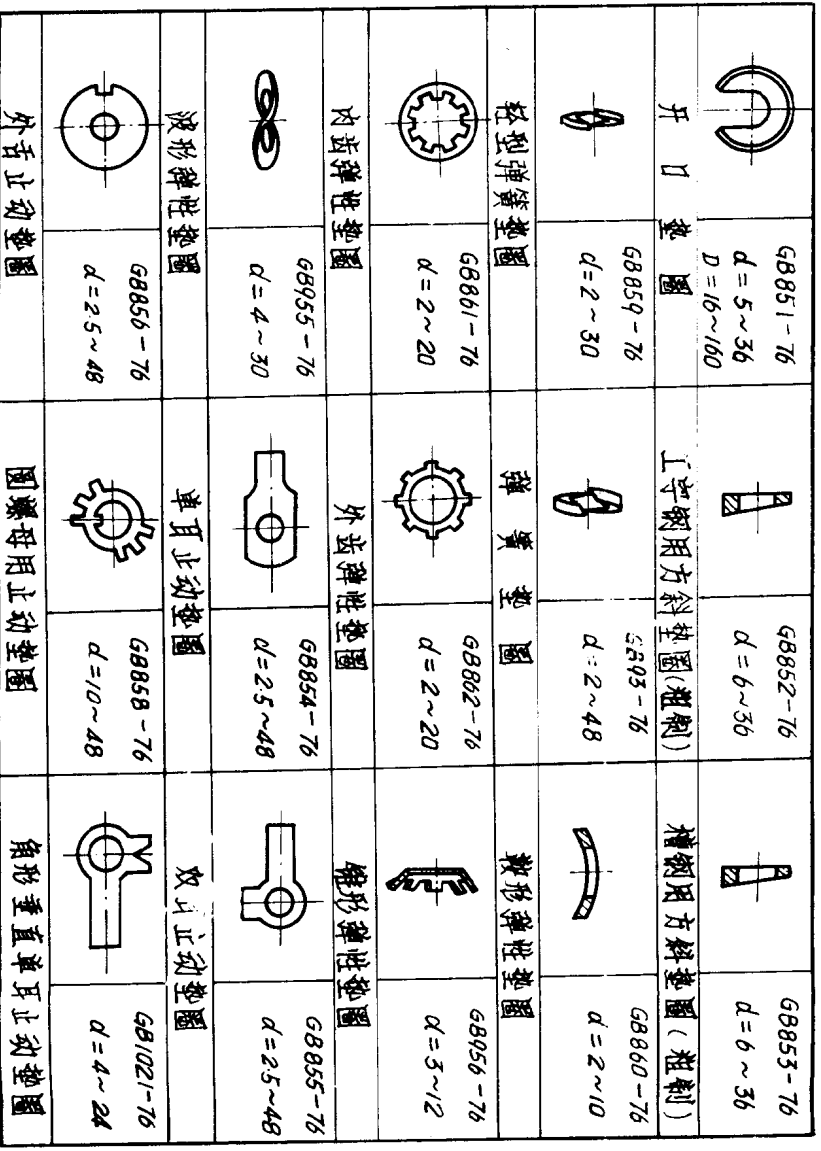 GB851-76
d=5~36
D=16~160
GB852-76
d=6~36
GB853-76
d=6~36
开口垫圈
工字钢用方斜垫圈(粗制)
槽钢用方斜垫圈(粗制)
GB859-76
d=2~30
GB93-76
d=2~48
GB860-76
d=2~10
轻型弹簧垫圈
弹簧垫圈
鞍形弹性垫圈
GB861-76
d=2~20
GB862-76
d=2~20
GB956-76
d=3~12
内齿弹性垫圈
外齿弹性垫圈
锥形弹性垫圈
GB955-76
d=4~30
GB854-76
d=2.5~48
GB855-76
d=2.5~48
波形弹性垫圈
单耳止动垫圈
双耳止动垫圈
GB856-76
d=2.5~48
GB858-76
d=10~48
GB1021-76
d=4~24
外舌止动垫圈
圆螺母用止动垫圈
角形垂直单耳止动垫圈